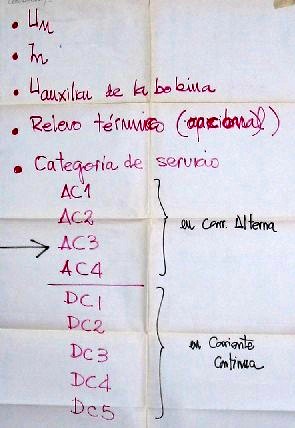 • Un
• In
• Uauxiliar de la bobina
• Relevo térmico (opcional)
• Categoría de servicio
AC1
AC2
en Corr. Alterna
AC3
AC4
DC1
DC2
en Corriente
DC3
Continua
DC4
DC5